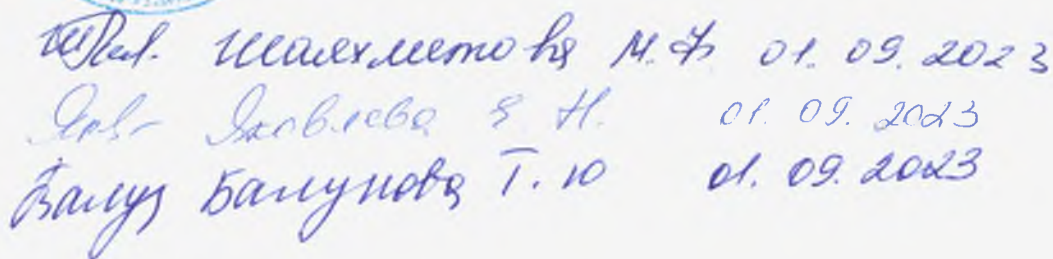 Шаяхметова М.Ф 01.09.2023
Яковлева Е Н. 01.09.2023
Балунова Т.Ю 01.09.2023